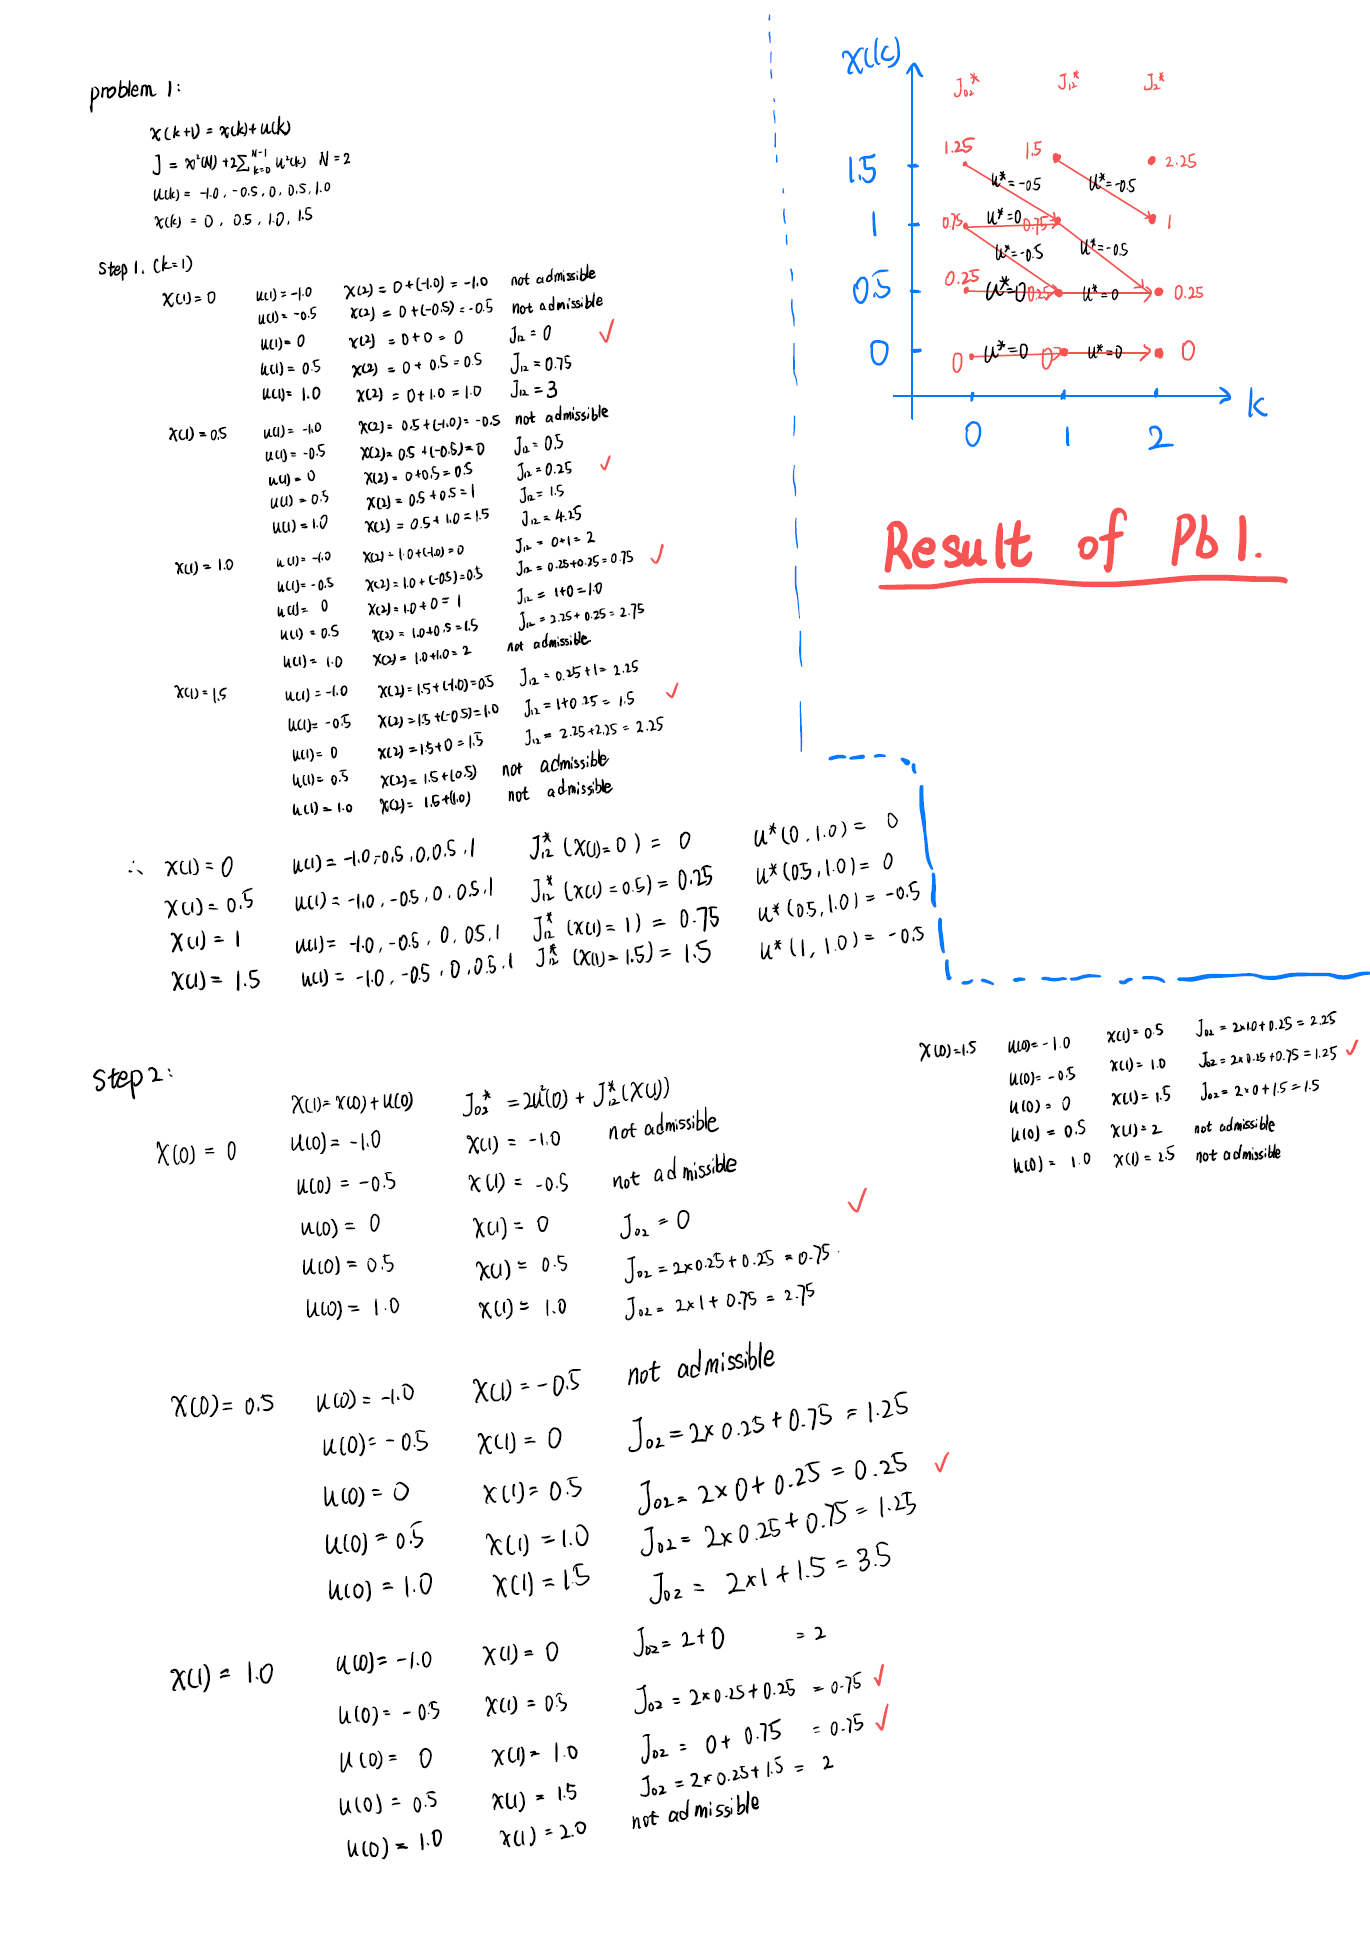 problem 1:
x(k+1) = x(k)+u(k)
J = x²(N) + 2∑_{k=0}^{N-1} u²(k)  N=2
u(k) = -1.0, -0.5, 0, 0.5, 1.0
x(k) = 0, 0.5, 1.0, 1.5
Step 1. (k=1)
x(1)=0  u(1)=-1.0  x(2)=0+(-1.0)=-1.0  not admissible
u(1)=-0.5  x(2)=0+(-0.5)=-0.5  not admissible
u(1)=0  x(2)=0+0=0  J₁₂=0 ✓
u(1)=0.5  x(2)=0+0.5=0.5  J₁₂=0.75
u(1)=1.0  x(2)=0+1.0=1.0  J₁₂=3
x(1)=0.5  u(1)=-1.0  x(2)=0.5+(-1.0)=-0.5  not admissible
u(1)=-0.5  x(2)=0.5+(-0.5)=0  J₁₂=0.5
u(1)=0  x(2)=0+0.5=0.5  J₁₂=0.25 ✓
u(1)=0.5  x(2)=0.5+0.5=1  J₁₂=1.5
u(1)=1.0  x(2)=0.5+1.0=1.5  J₁₂=4.25
x(1)=1.0  u(1)=-1.0  x(2)=1.0+(-1.0)=0  J₁₂=0+1=2
u(1)=-0.5  x(2)=1.0+(-0.5)=0.5  J₁₂=0.25+0.25=0.75 ✓
u(1)=0  x(2)=1.0+0=1  J₁₂=1+0=1.0
u(1)=0.5  x(2)=1.0+0.5=1.5  J₁₂=2.25+0.25=2.75
u(1)=1.0  x(2)=1.0+1.0=2  not admissible
x(1)=1.5  u(1)=-1.0  x(2)=1.5+(-1.0)=0.5  J₁₂=0.25+1=2.25
u(1)=-0.5  x(2)=1.5+(-0.5)=1.0  J₁₂=1+0.25=1.5 ✓
u(1)=0  x(2)=1.5+0=1.5  J₁₂=2.25+2.25=2.25
u(1)=0.5  x(2)=1.5+(0.5)  not admissible
u(1)=1.0  x(2)=1.5+(1.0)  not admissible
∴ x(1)=0  u(1)=-1.0,-0.5,0,0.5,1  J₁₂*(x(1)=0)=0  u*(0,1.0)=0
x(1)=0.5  u(1)=-1.0,-0.5,0,0.5,1  J₁₂*(x(1)=0.5)=0.25  u*(0.5,1.0)=0
x(1)=1  u(1)=-1.0,-0.5,0,0.5,1  J₁₂*(x(1)=1)=0.75  u*(0.5,1.0)=-0.5
x(1)=1.5  u(1)=-1.0,-0.5,0,0.5,1  J₁₂*(x(1)=1.5)=1.5  u*(1,1.0)=-0.5
x(k)
J₀₂*  J₁₂*  J₂*
1.5  1.25  1.5  2.25
u*=-0.5  u*=-0.5
1  0.75  u*=0  0.75  1
u*=-0.5  u*=-0.5
0.5  0.25  u*=0  0.25  u*=0  0.25
0  0  u*=0  0  u*=0  0
0  1  2  k
Result of Pb1.
Step 2:
x(1)=x(0)+u(0)  J₀₂*=2u²(0)+J₁₂*(x(1))
x(0)=0  u(0)=-1.0  x(1)=-1.0  not admissible
u(0)=-0.5  x(1)=-0.5  not admissible
u(0)=0  x(1)=0  J₀₂=0 ✓
u(0)=0.5  x(1)=0.5  J₀₂=2×0.25+0.25=0.75.
u(0)=1.0  x(1)=1.0  J₀₂=2×1+0.75=2.75
x(0)=0.5  u(0)=-1.0  x(1)=-0.5  not admissible
u(0)=-0.5  x(1)=0  J₀₂=2×0.25+0.75=1.25
u(0)=0  x(1)=0.5  J₀₂=2×0+0.25=0.25 ✓
u(0)=0.5  x(1)=1.0  J₀₂=2×0.25+0.75=1.25
u(0)=1.0  x(1)=1.5  J₀₂=2×1+1.5=3.5
x(1)=1.0  u(0)=-1.0  x(1)=0  J₀₂=2+0 =2
u(0)=-0.5  x(1)=0.5  J₀₂=2×0.25+0.25 =0.75 ✓
u(0)=0  x(1)=1.0  J₀₂=0+0.75 =0.75 ✓
u(0)=0.5  x(1)=1.5  J₀₂=2×0.25+1.5=2
u(0)=1.0  x(1)=2.0  not admissible
x(0)=1.5  u(0)=-1.0  x(1)=0.5  J₀₂=2×1.0+0.25=2.25
u(0)=-0.5  x(1)=1.0  J₀₂=2×0.25+0.75=1.25 ✓
u(0)=0  x(1)=1.5  J₀₂=2×0+1.5=1.5
u(0)=0.5  x(1)=2  not admissible
u(0)=1.0  x(1)=2.5  not admissible